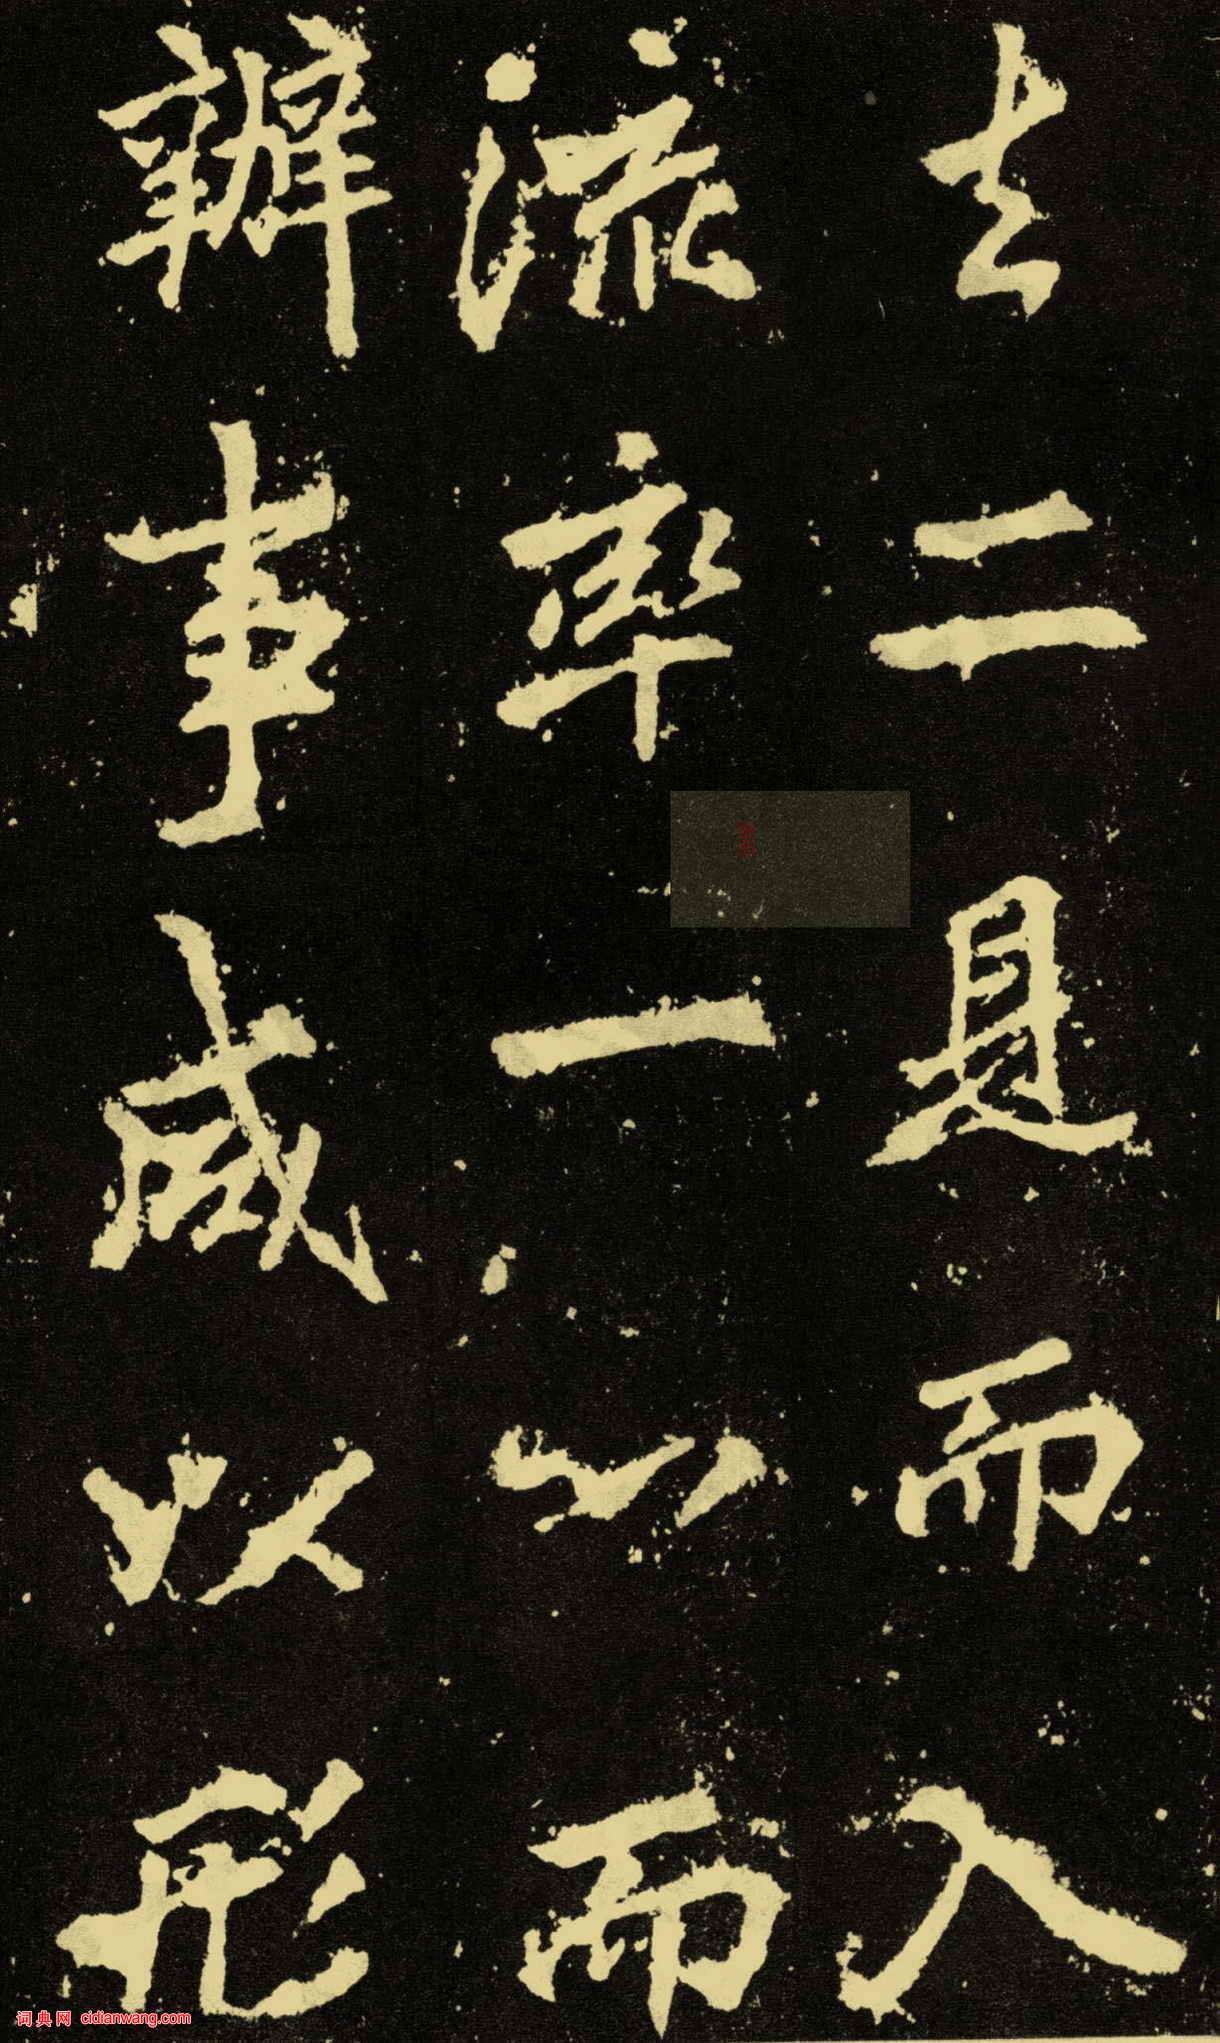 去二見而入
流率一心而
辦事咸以形
词典网 cidianwang.com